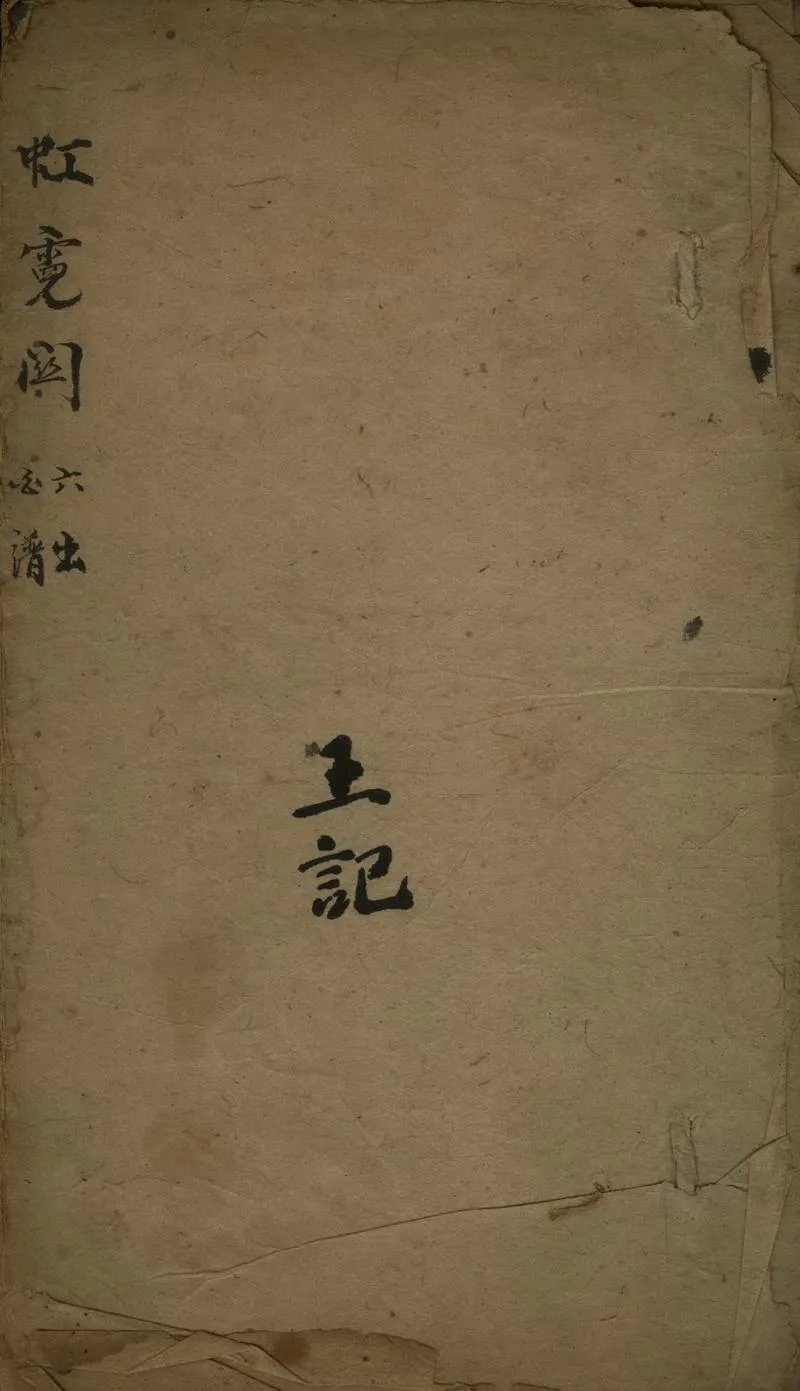 虹霓関
六出
全譜
王記